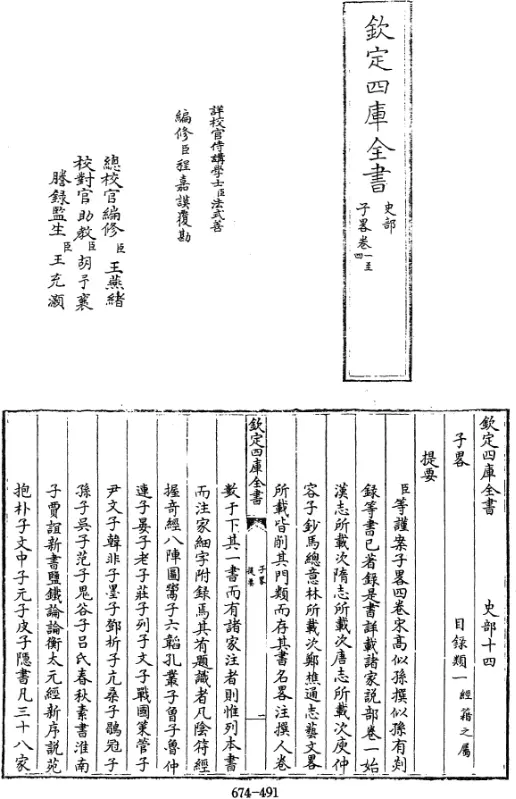 欽定四庫全書
史部
子畧卷一至四
詳校官侍講學士臣法式善
編修臣程嘉謨覆勘
總校官編修臣王燕緒
校對官助教臣胡予襄
謄錄監生臣王充灝
欽定四庫全書 史部十四
子畧 目録類一 經籍之屬
提要
臣等謹案子畧四卷宋高似孫撰似孫有剡
録等書已著録是書詳載諸家説部卷一始
漢志所載次隋志所載次唐志所載次庾仲
容子鈔馬總意林所載次鄭樵通志藝文畧
所載皆削其門類而存其書名畧注撰人卷
欽定四庫全書 子畧 提要 一
數于下其一書而有諸家注者則惟列本書
而注家細字附録焉其有題識者凡陰符經
握奇經八陣圖鬻子六韜孔叢子曾子魯仲
連子晏子老子莊子列子文子戰國策管子
尹文子韓非子墨子鄧析子亢桑子鶡冠子
孫子吳子范子鬼谷子吕氏春秋素書淮南
子賈誼新書鹽鐵論論衡太元經新序説苑
抱朴子文中子元子皮子隱書凡三十八家
674-491